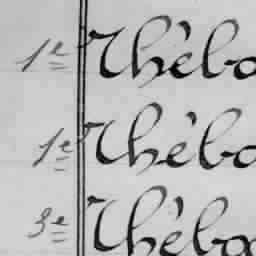 1e Thébo
1e Thébo
3e Thébo